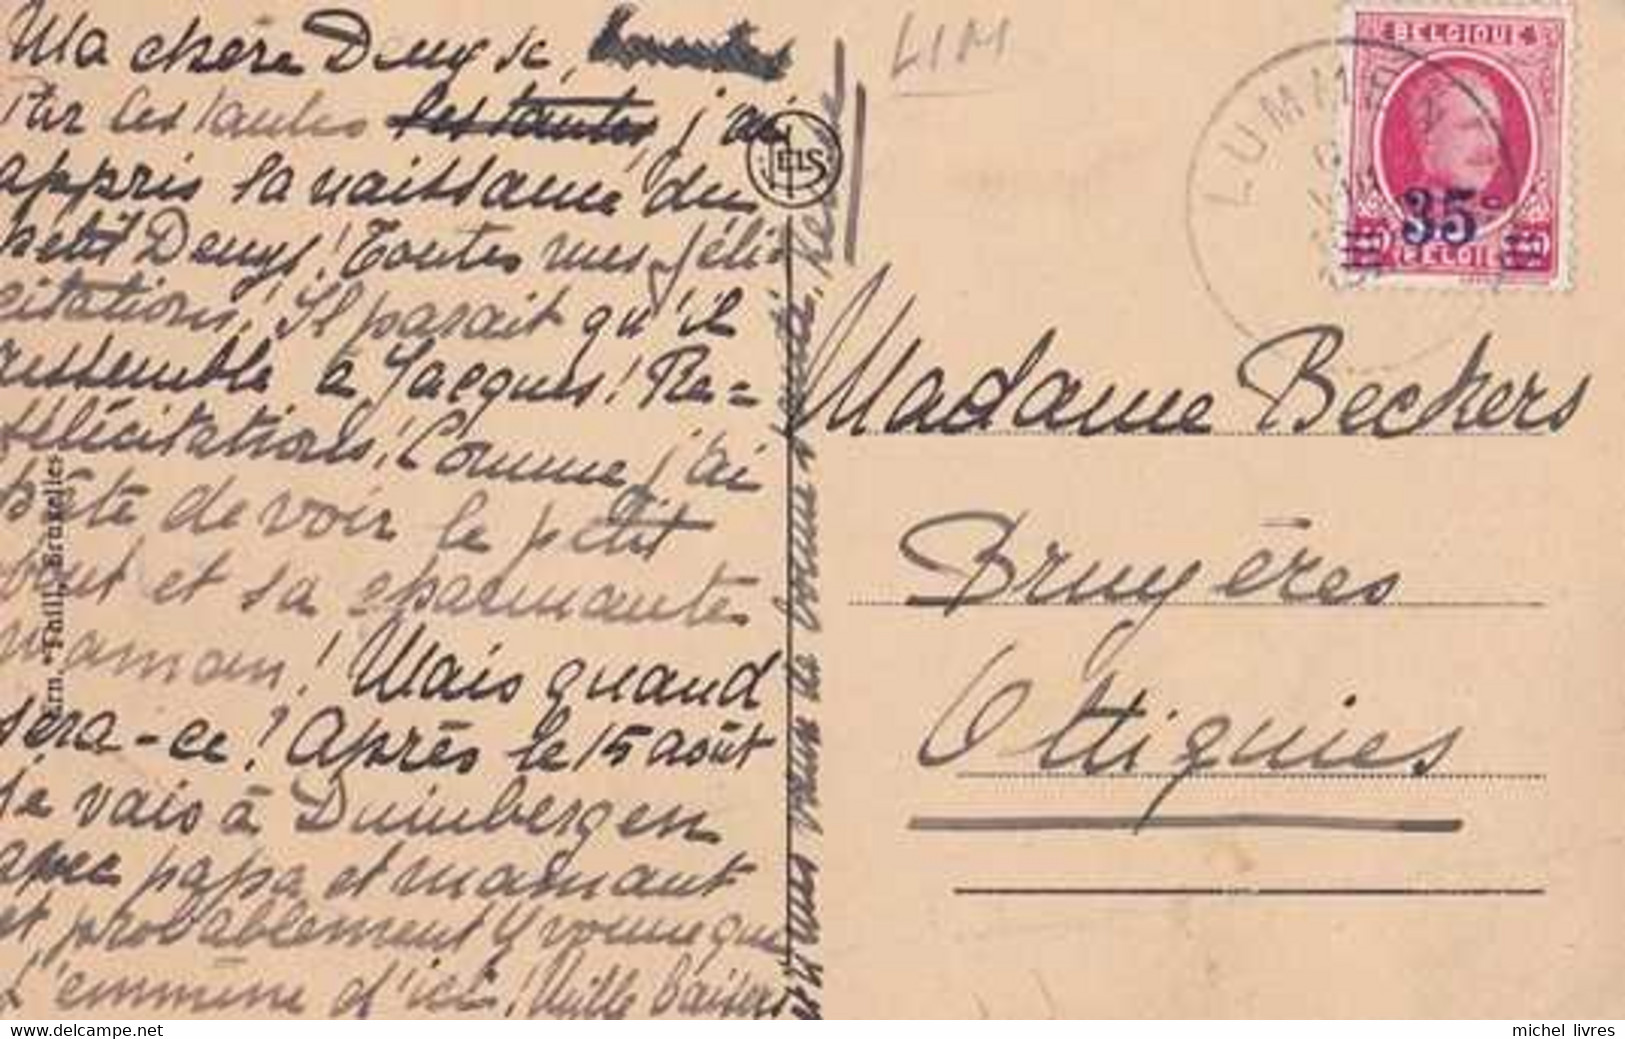 Ma chère Denyse,
Par les tantes les tantes, j'ai
appris la naissance du
petit Denys! Toutes mes féli-
citations! Il parait qu'il
ressemble à Jacques! Re-
félicitations! Comme j'ai
hâte de voir le petit
bout et sa charmante
maman! Mais quand
sera-ce? Après le 15 août
je vais à Duinbergen
avec papa et maman
et probablement Yvonne que
j'emmène d'ici! Mille baisers
et mes vœux de bonne santé,
ELS
Ern. Thill, Bruxelles
LIM
LUMM
BELGIQUE
35c
BELGIE
Madame Beckers
Bruyères
Ottignies
michel_livres